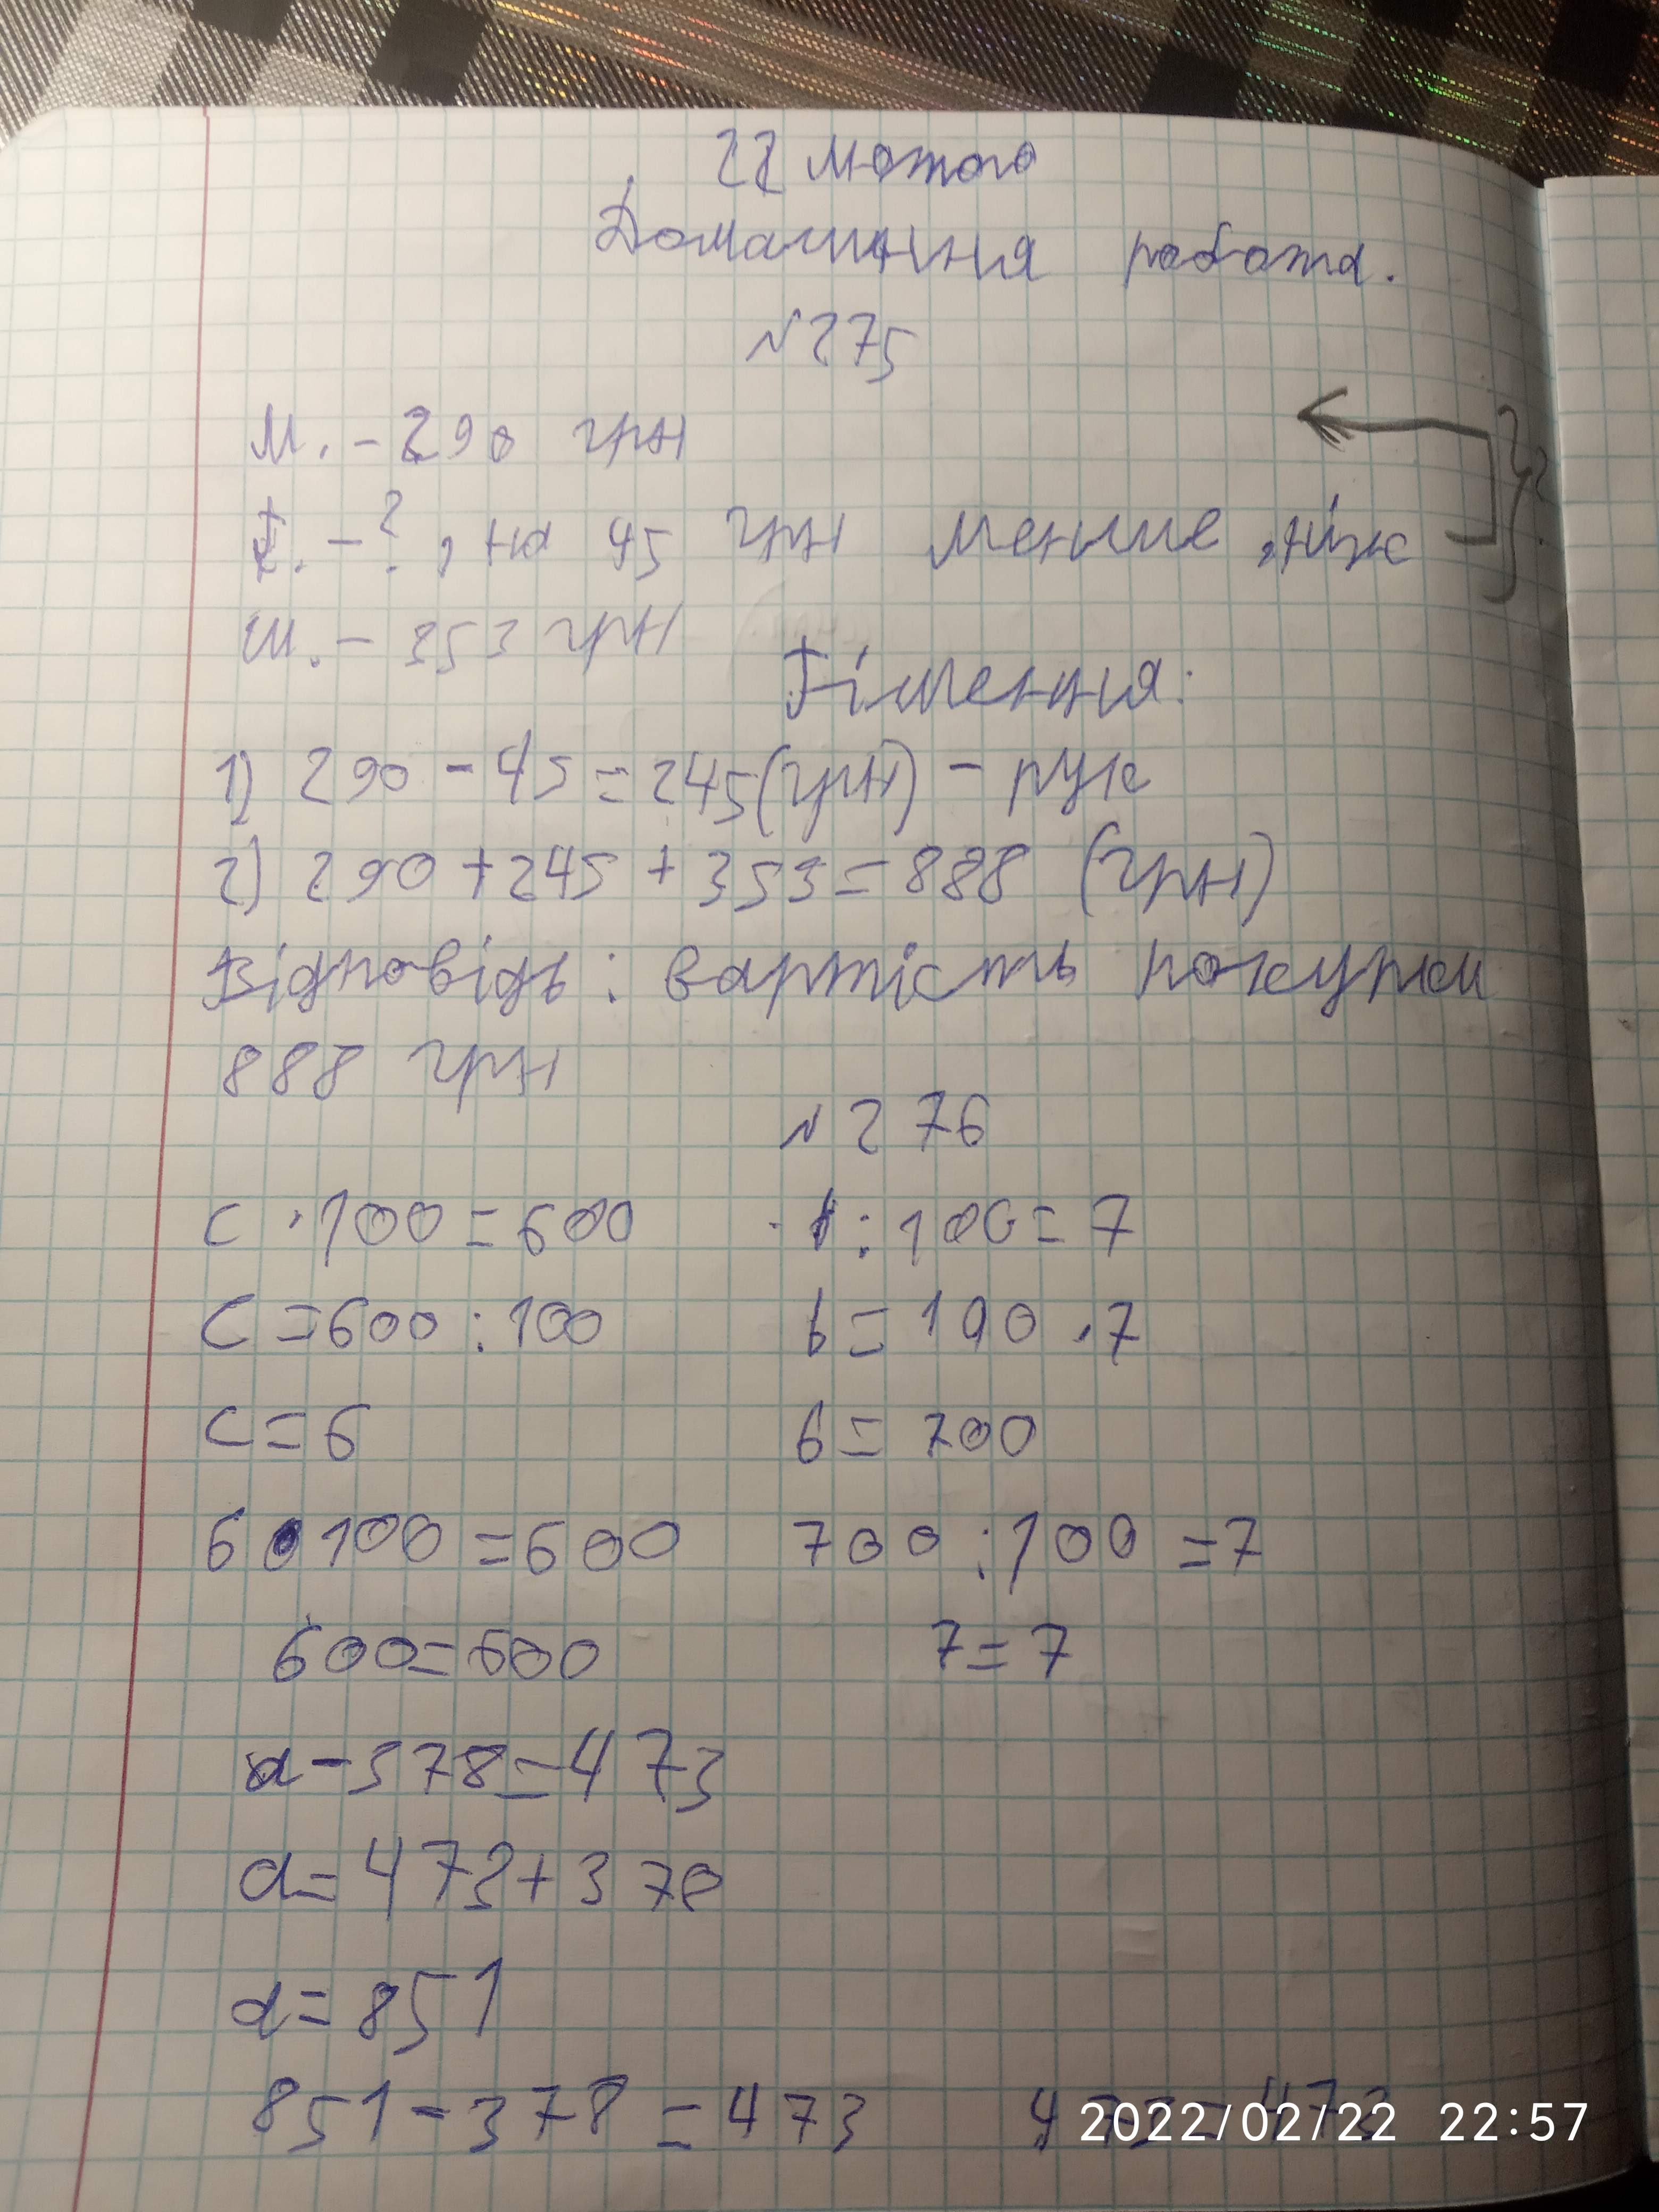 22 лютого
Домашння работа.
№275
М. - 290 грн
Р. - ? , на 45 грн менше ,ніж
}?
Ш. - 353 грн
Рішення:
1) 290 - 45 = 245 (грн) - рук
2) 290 + 245 + 353 = 888 (грн)
Відповідь : вартість покупки
888 грн
№276
c · 100 = 600
b : 100 = 7
c = 600 : 100
b = 100 · 7
c = 6
b = 700
6 · 100 = 600
700 : 100 = 7
600 = 600
7 = 7
a - 378 = 473
a = 473 + 378
a = 851
851 - 378 = 473 473 = 473
2022/02/22 22:57